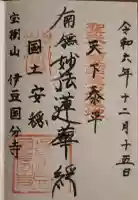 令和六年十二月十五日
天下泰平
南無妙法蓮華経
国土安穏
宝樹山 伊豆国分寺